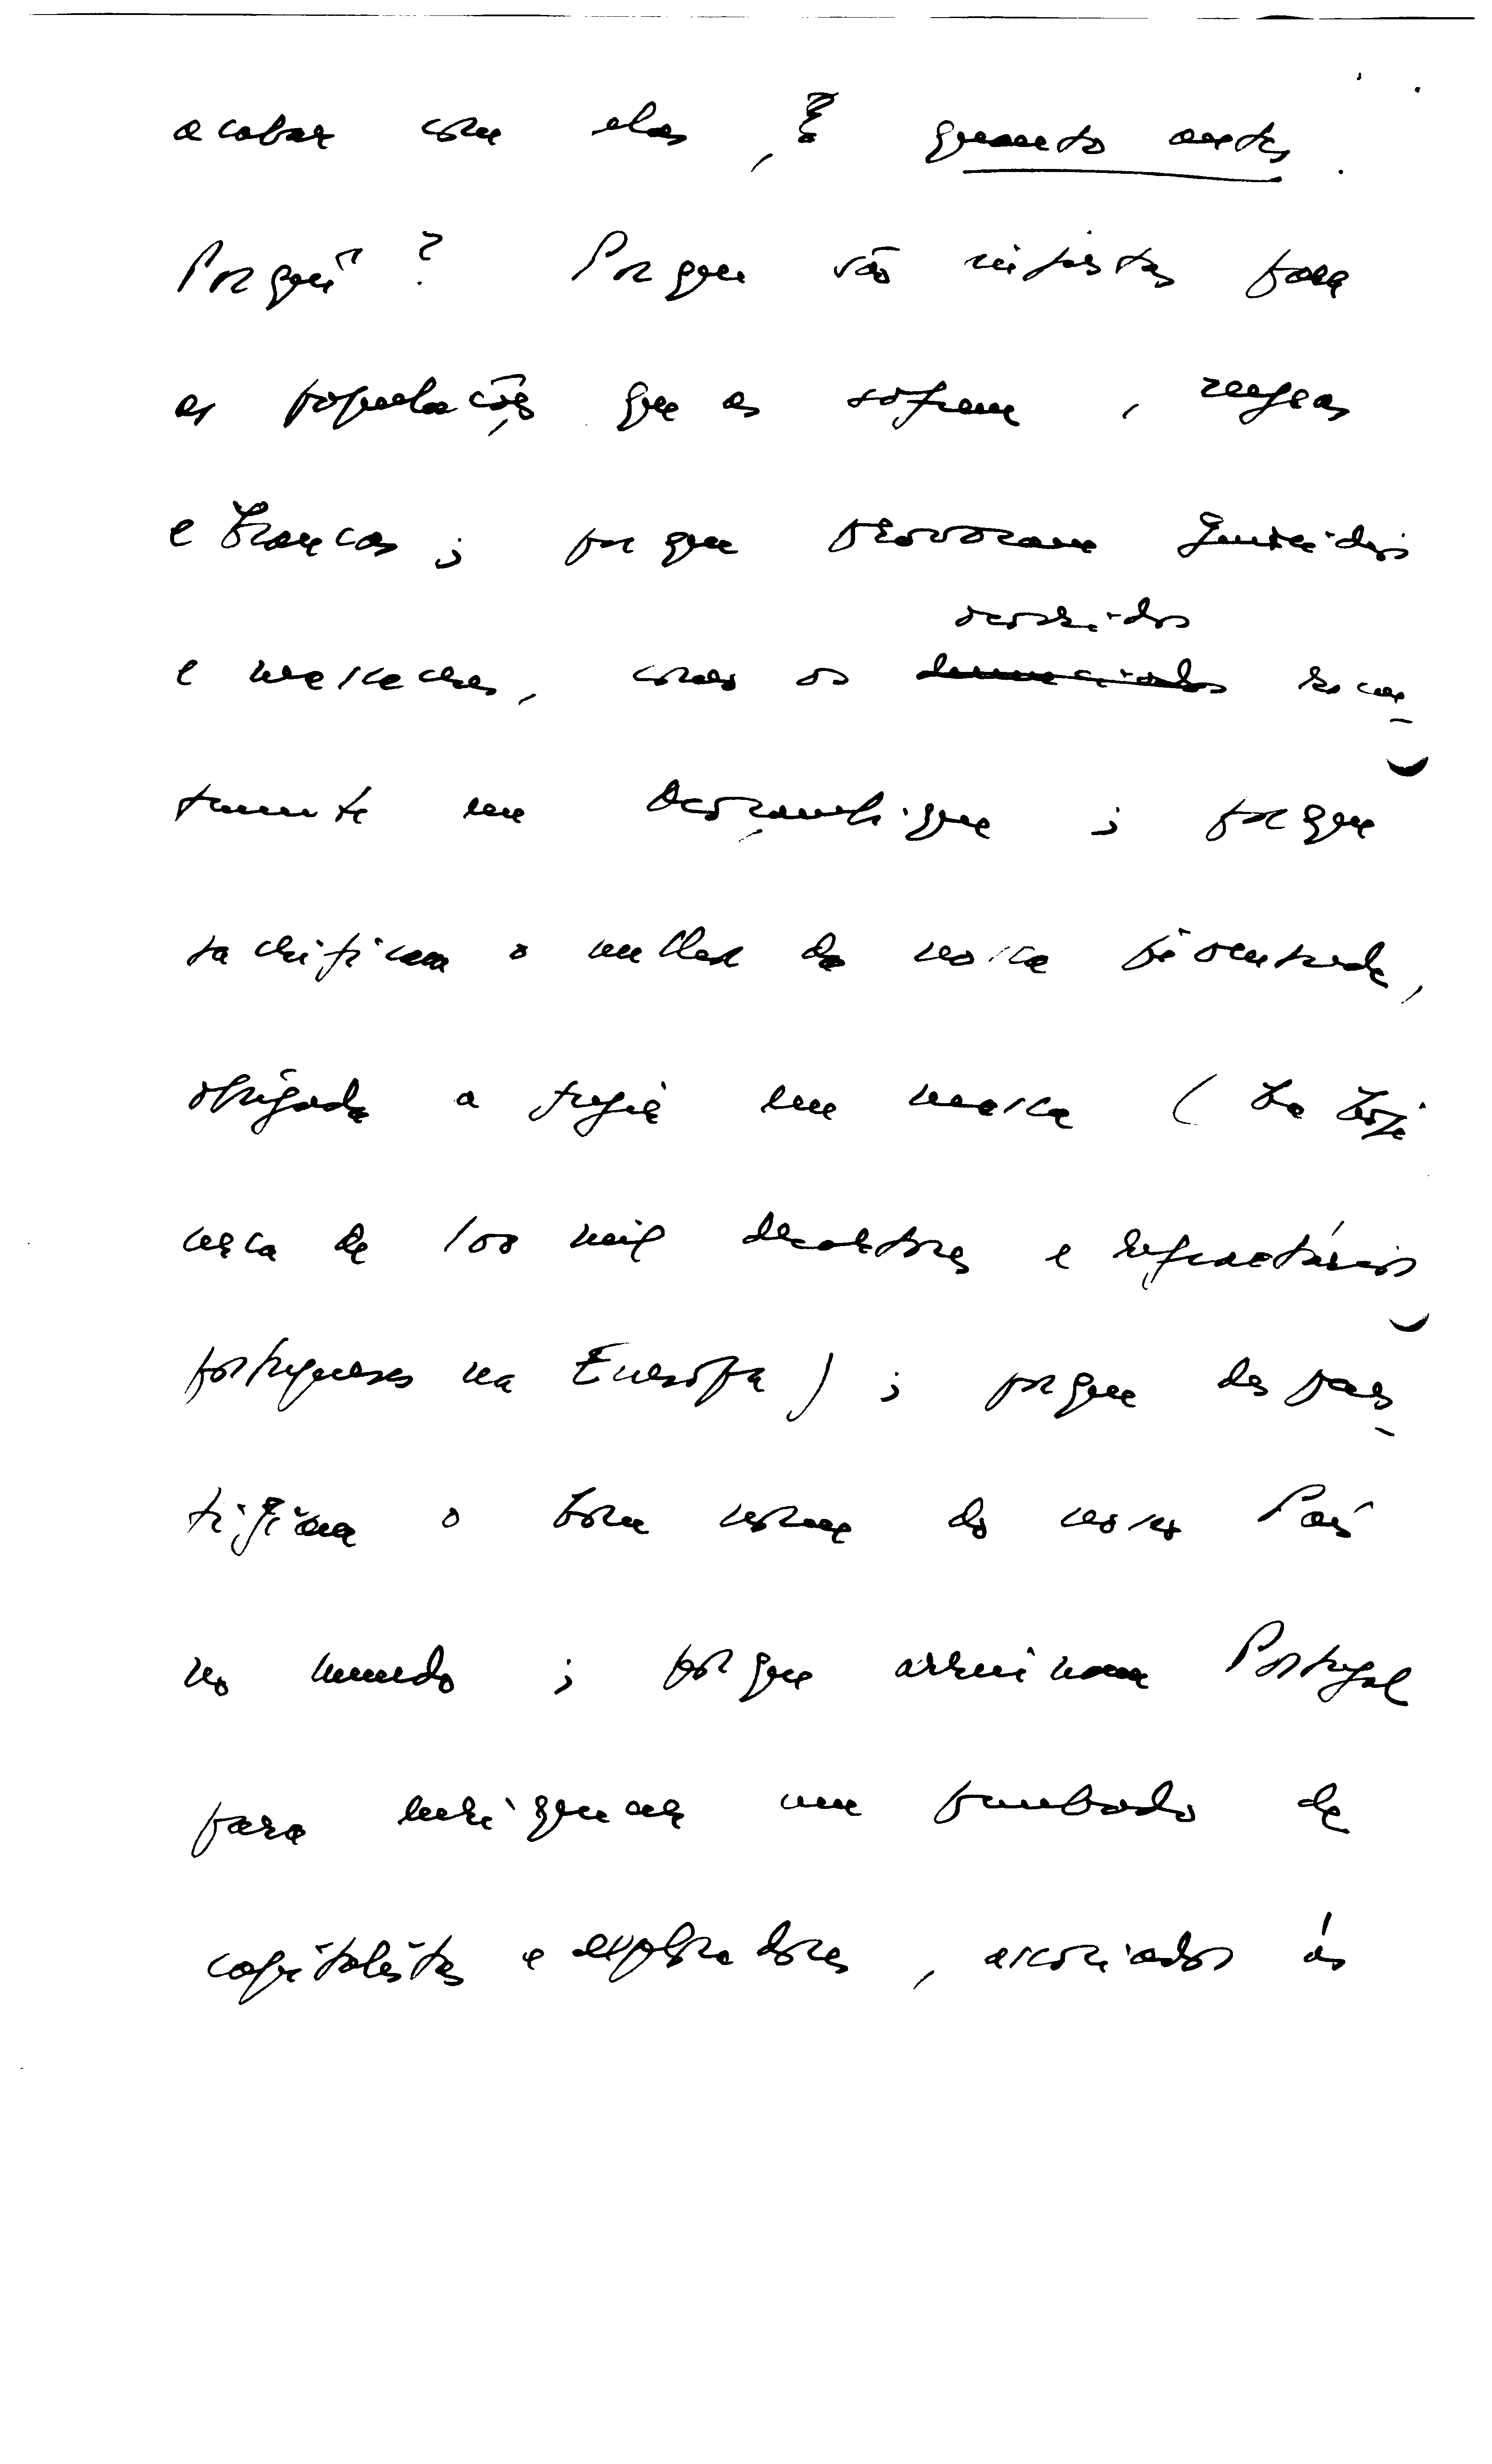 acabar com elas, quanto antes.
Porquê? Porque são injustas para
as populações que as sofrem, negras
e brancas; porque provocam genocídios
ocorridos
e massacres, como os denunciados recen-
temente em Moçambique; porque
sacrificam o melhor da nossa juventude,
obrigada a fugir em massa (há hoje
cerca de 100 mil desertores e refractários
portugueses na Europa); porque despres-
tigiam o bom nome do nosso País
no mundo; porque arruinam Portugal
para enriquecer um punhado de
capitalistas e exploradores, associados às